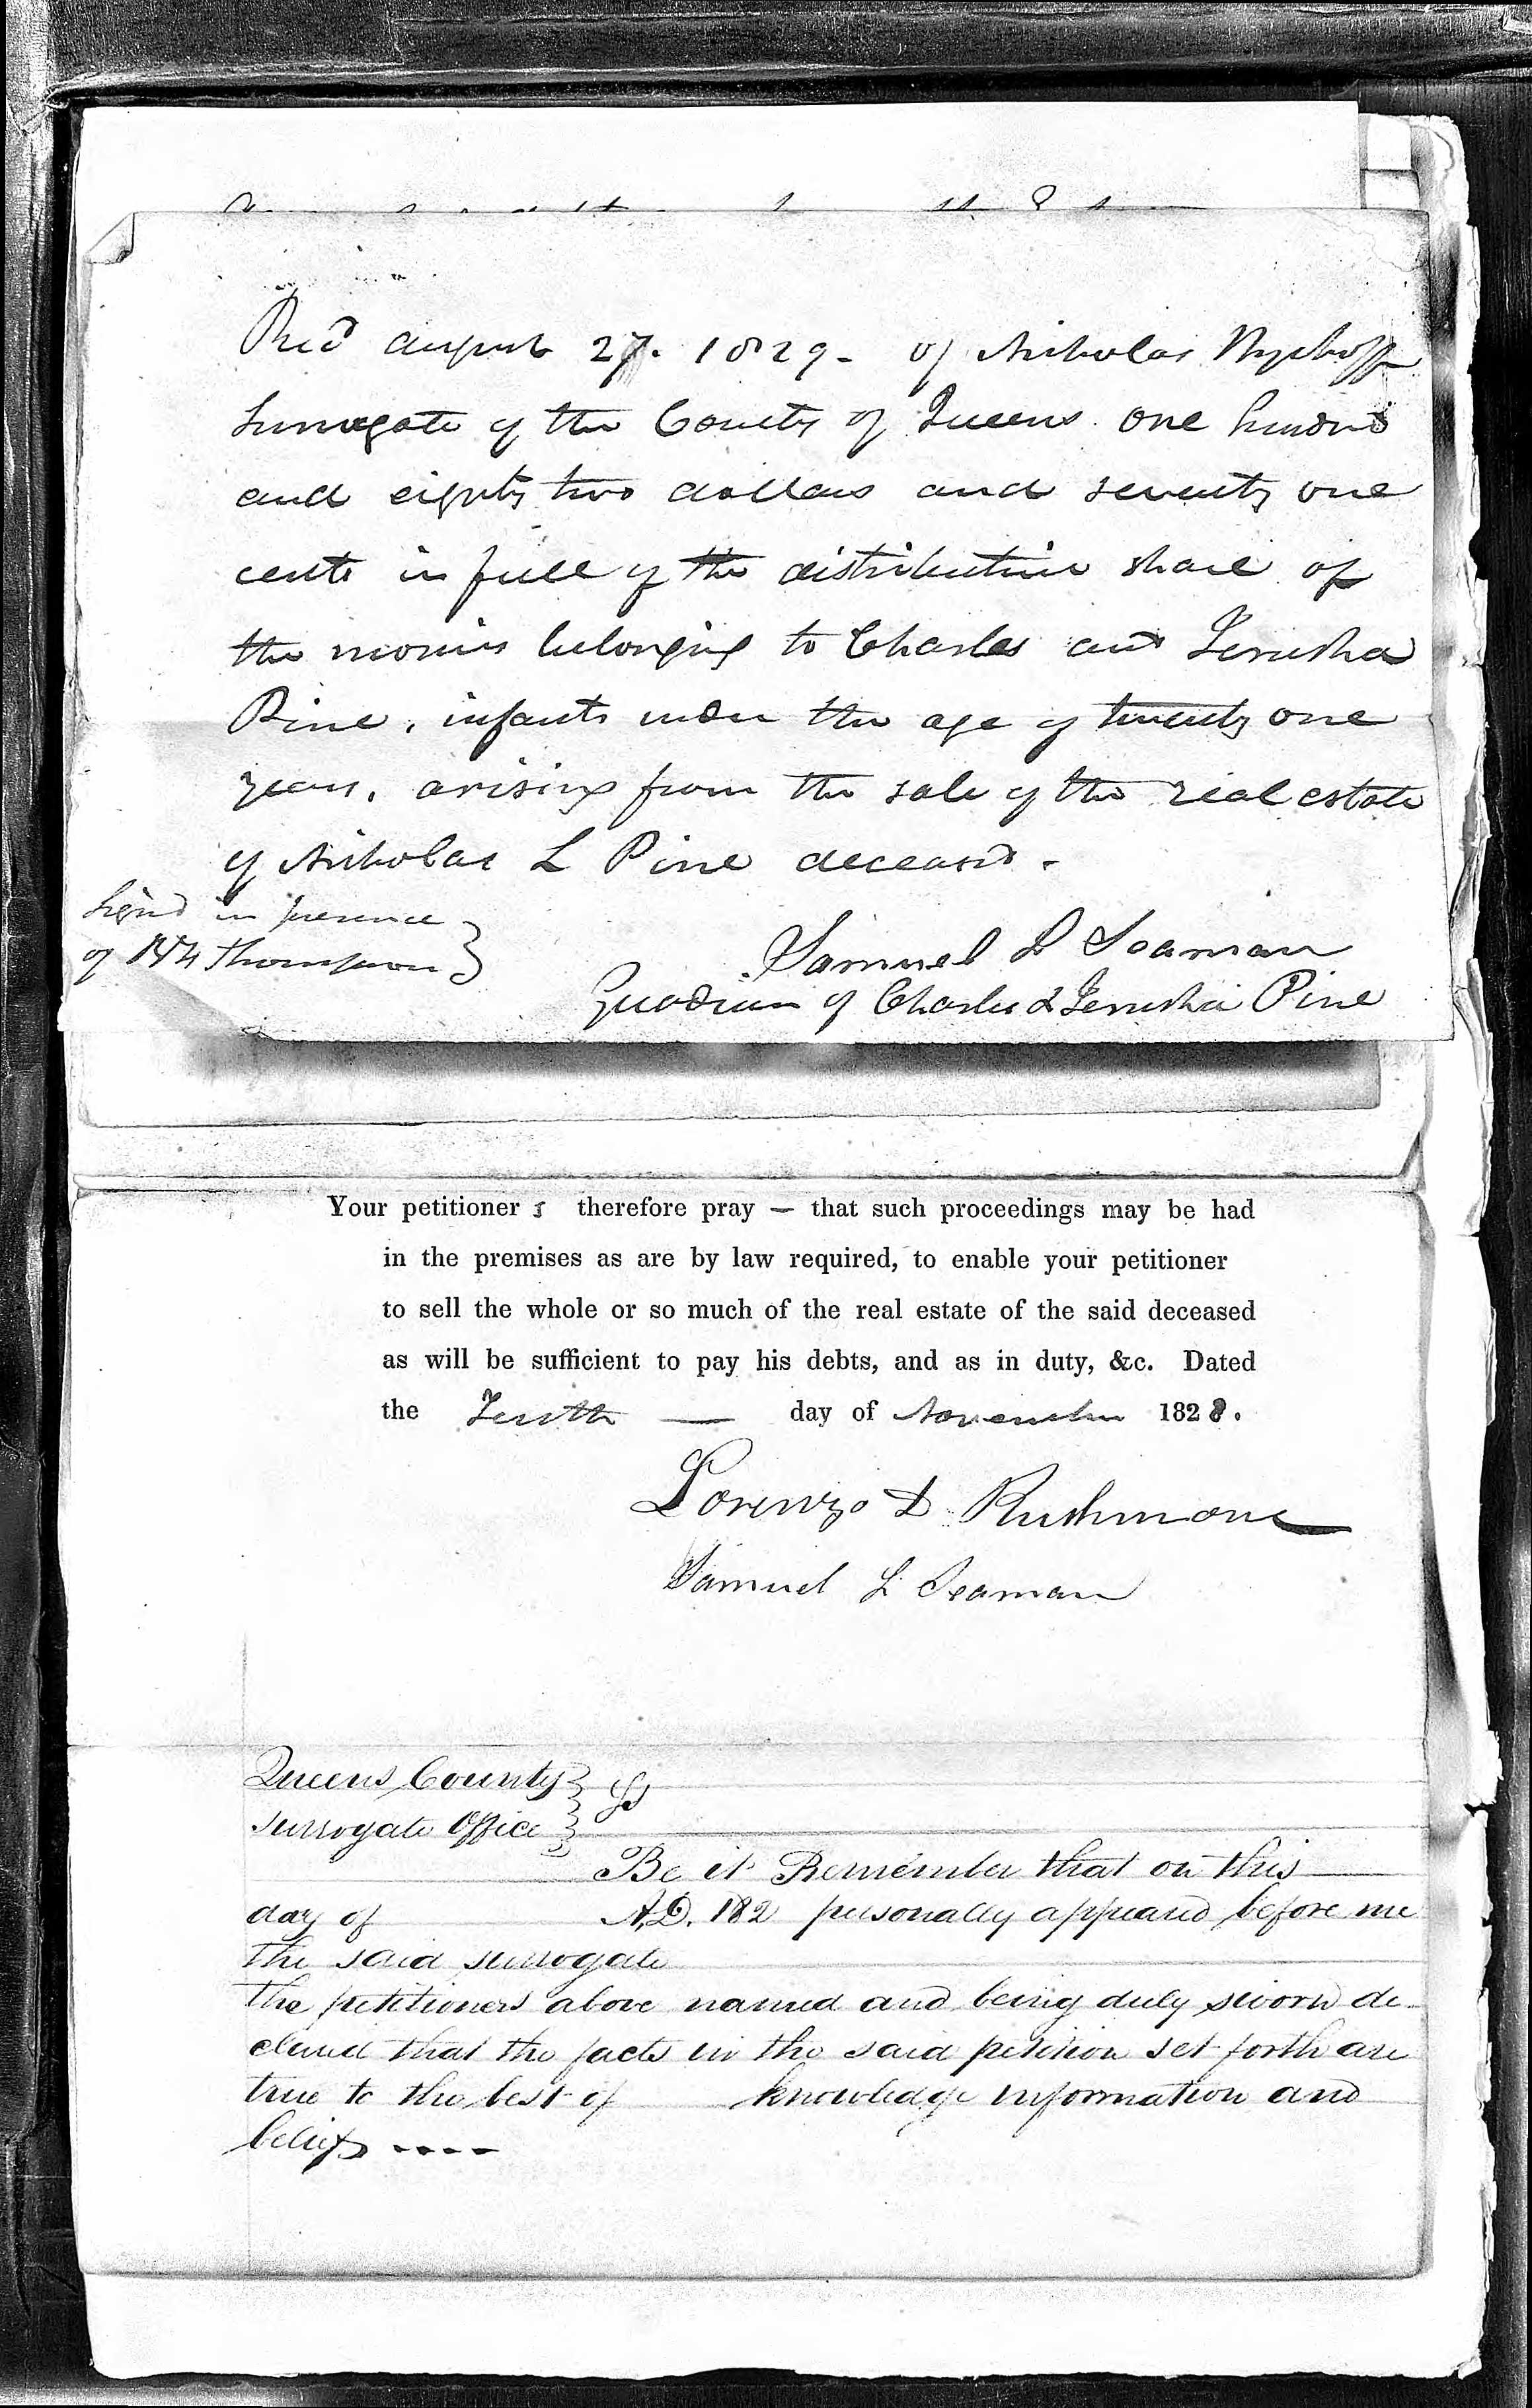 Recd August 27. 1829 - of Nicholas Wyckoff
Surrogate of the County of Queens. one hundred
and eighty two dollars and seventy one
cents in full of the distributive share of
the monies belonging to Charles and Jerusha
Pine, infants under the age of twenty one
years, arising from the sale of the real estate
of Nicholas L Pine deceased.
Signd in presence
of Thompson }
Samuel L Seaman
Guardian of Charles & Jerusha Pine
Your petitioner s therefore pray — that such proceedings may be had
in the premises as are by law required, to enable your petitioner
to sell the whole or so much of the real estate of the said deceased
as will be sufficient to pay his debts, and as in duty, &c. Dated
the Tenth — day of November 1828.
Lorenzo D Rushmore
Samuel L Seaman
Queens County } Ss
Surrogate Office }
Be it Remember that on this
day of A.D. 182 personally appeared before me
the said surrogate
the petitioners above named and being duly sworn de-
clared that the facts in the said petition set forth are
true to the best of knowledge information and
belief ----